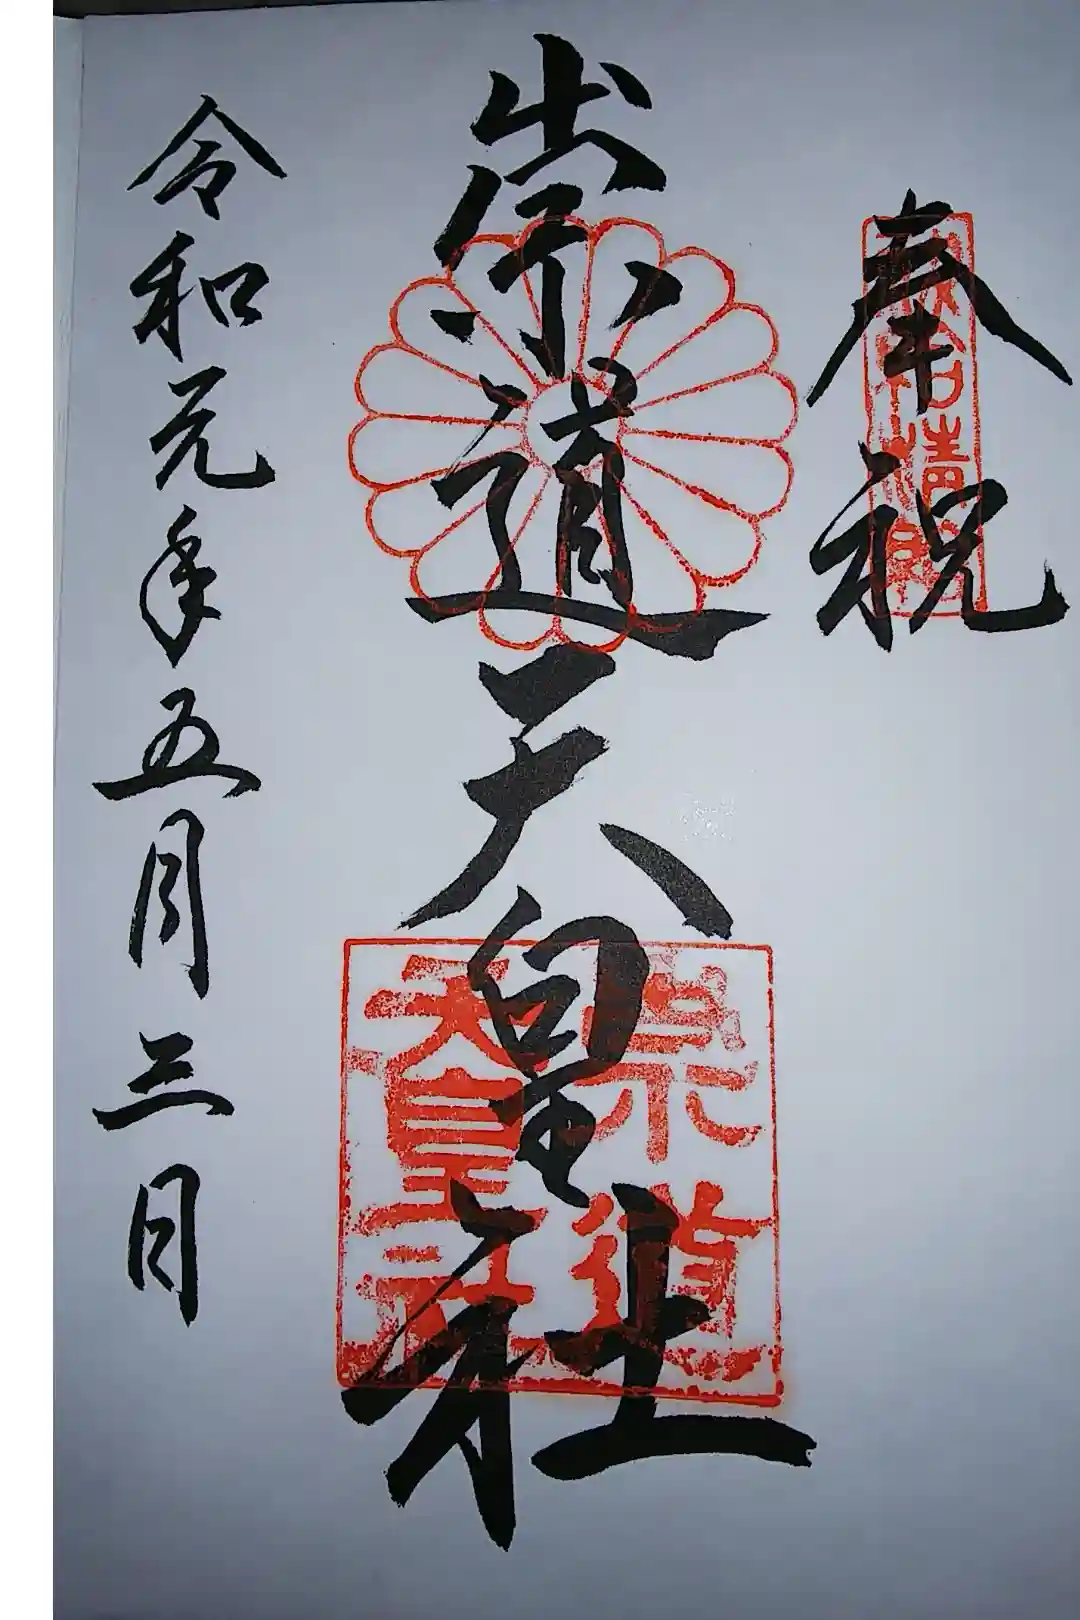 奉祝
崇道天皇社
崇道
天皇社
令和元年五月三日